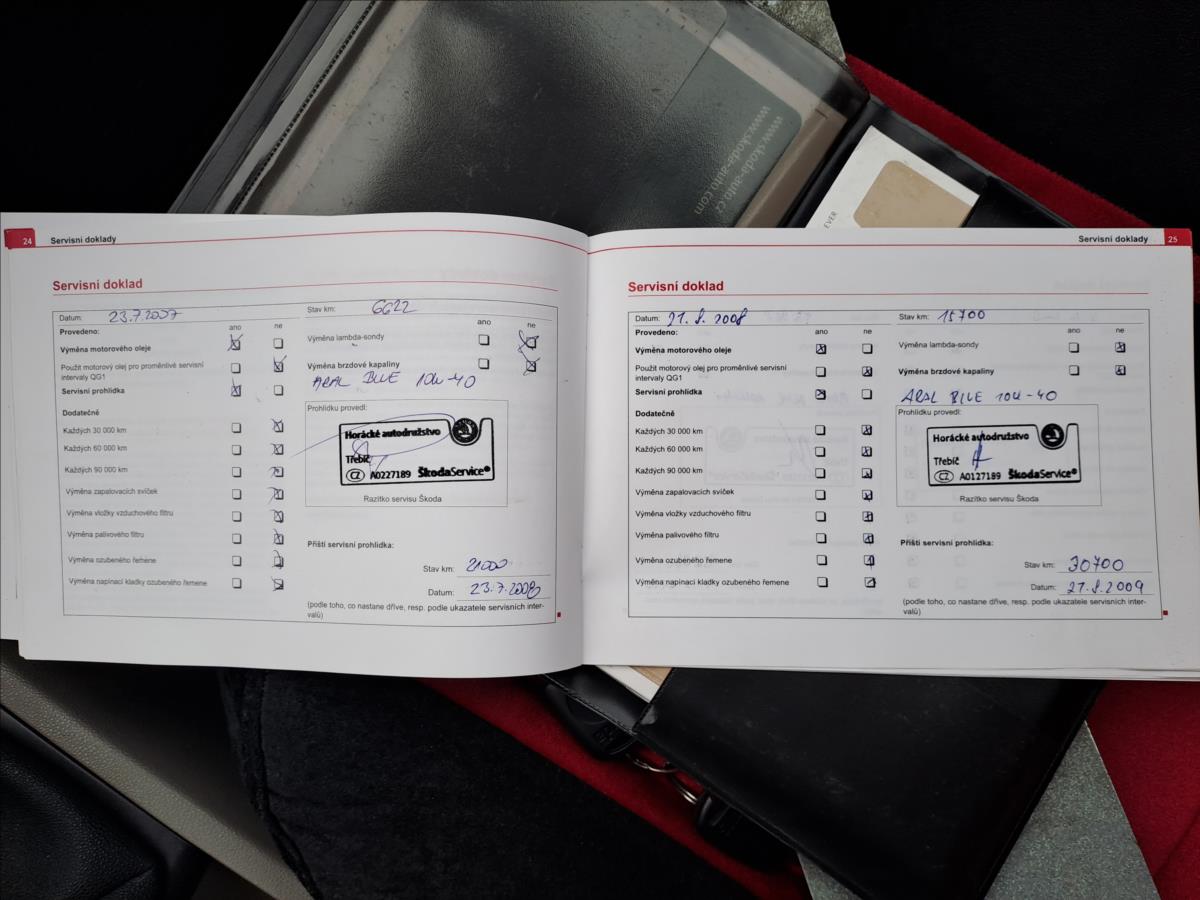 www.skoda-auto.cz
www.skoda-auto.com
EVER
24 Servisní doklady
Servisní doklad
Datum: 23.7.2007
Stav km: 6622
Provedeno:
ano ne
ano ne
Výměna motorového oleje
Výměna lambda-sondy
Použit motorový olej pro proměnlivé servisní
intervaly QG1
Výměna brzdové kapaliny
Servisní prohlídka
ARAL BLUE 10W-40
Dodatečně
Každých 30 000 km
Každých 60 000 km
Každých 90 000 km
Výměna zapalovacích svíček
Výměna vložky vzduchového filtru
Výměna palivového filtru
Výměna ozubeného řemene
Výměna napínací kladky ozubeného řemene
Prohlídku provedl:
Horácké autodružstvo
Třebíč
CZ A0227189 ŠkodaService®
Razítko servisu Škoda
Příští servisní prohlídka:
Stav km: 21000
Datum: 23.7.2008
(podle toho, co nastane dříve, resp. podle ukazatele servisních inter-
valů)
Servisní doklady 25
Servisní doklad
Datum: 21.8.2008
Stav km: 15700
Provedeno:
ano ne
ano ne
Výměna motorového oleje
Výměna lambda-sondy
Použit motorový olej pro proměnlivé servisní
intervaly QG1
Výměna brzdové kapaliny
Servisní prohlídka
ARAL BLUE 10W-40
Dodatečně
Každých 30 000 km
Každých 60 000 km
Každých 90 000 km
Výměna zapalovacích svíček
Výměna vložky vzduchového filtru
Výměna palivového filtru
Výměna ozubeného řemene
Výměna napínací kladky ozubeného řemene
Prohlídku provedl:
Horácké autodružstvo
Třebíč
CZ A0127189 ŠkodaService®
Razítko servisu Škoda
Příští servisní prohlídka:
Stav km: 30700
Datum: 21.8.2009
(podle toho, co nastane dříve, resp. podle ukazatele servisních inter-
valů)